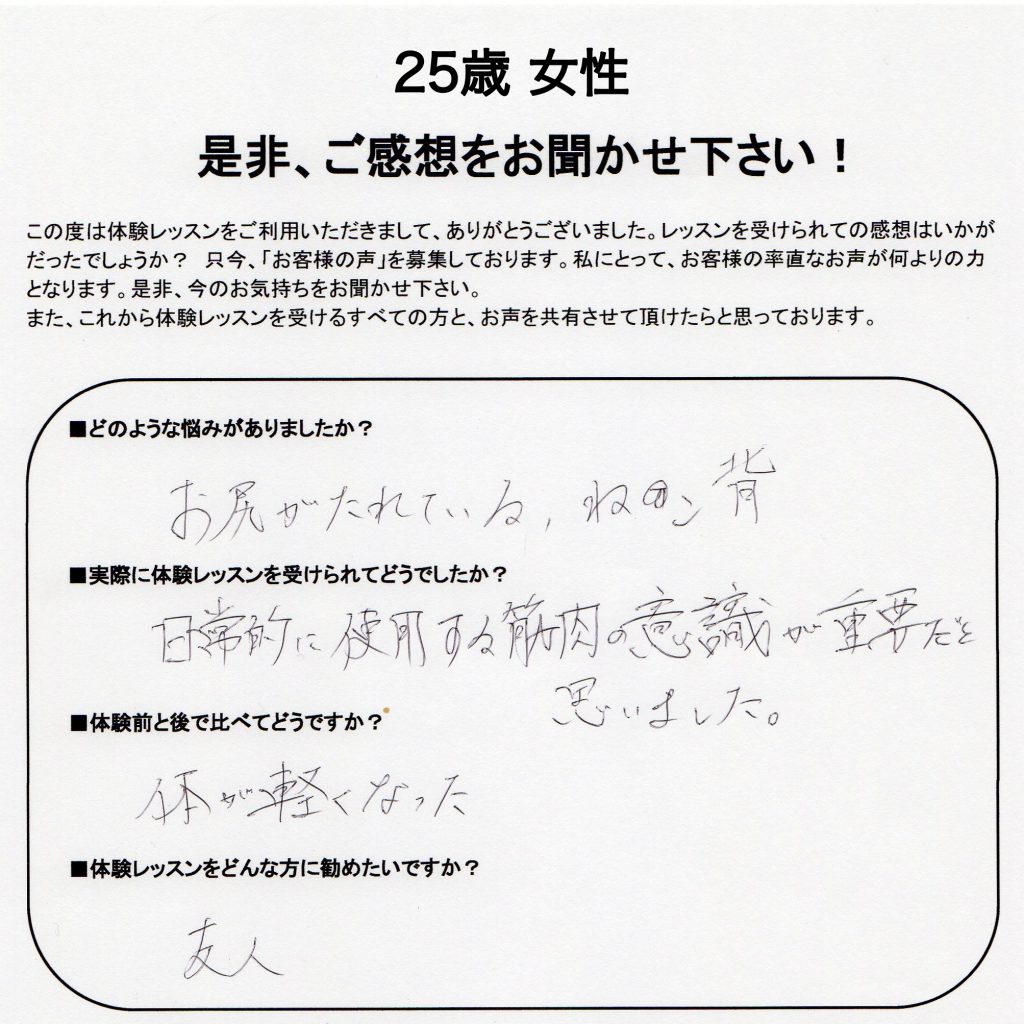 25歳 女性
是非、ご感想をお聞かせ下さい！
この度は体験レッスンをご利用いただきまして、ありがとうございました。レッスンを受けられての感想はいかが
だったでしょうか？　只今、「お客様の声」を募集しております。私にとって、お客様の率直なお声が何よりの力
となります。是非、今のお気持ちをお聞かせ下さい。
また、これから体験レッスンを受けるすべての方と、お声を共有させて頂けたらと思っております。
■どのような悩みがありましたか？
お尻がたれている, ねコン背
■実際に体験レッスンを受けられてどうでしたか？
日常的に使用する筋肉の意識が重要だと
思いました。
■体験前と後で比べてどうですか？
体が軽くなった
■体験レッスンをどんな方に勧めたいですか？
友人